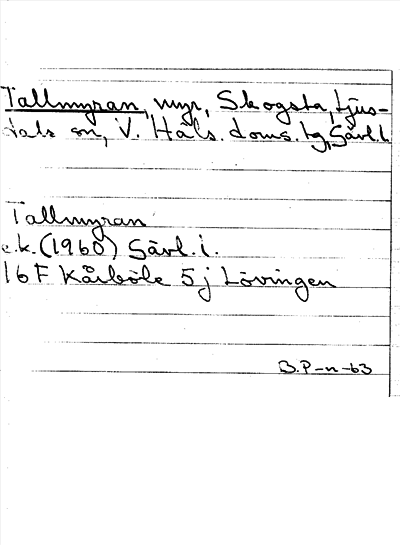 Tallmyran, myr, Skogsta, Ljus-
dals sn, V. Häls. doms. hg, Gävl. l
Tallmyran
e.k. (1960) Gävl. l.
16F Kårböle 5j Lövingen
B.P-n-63